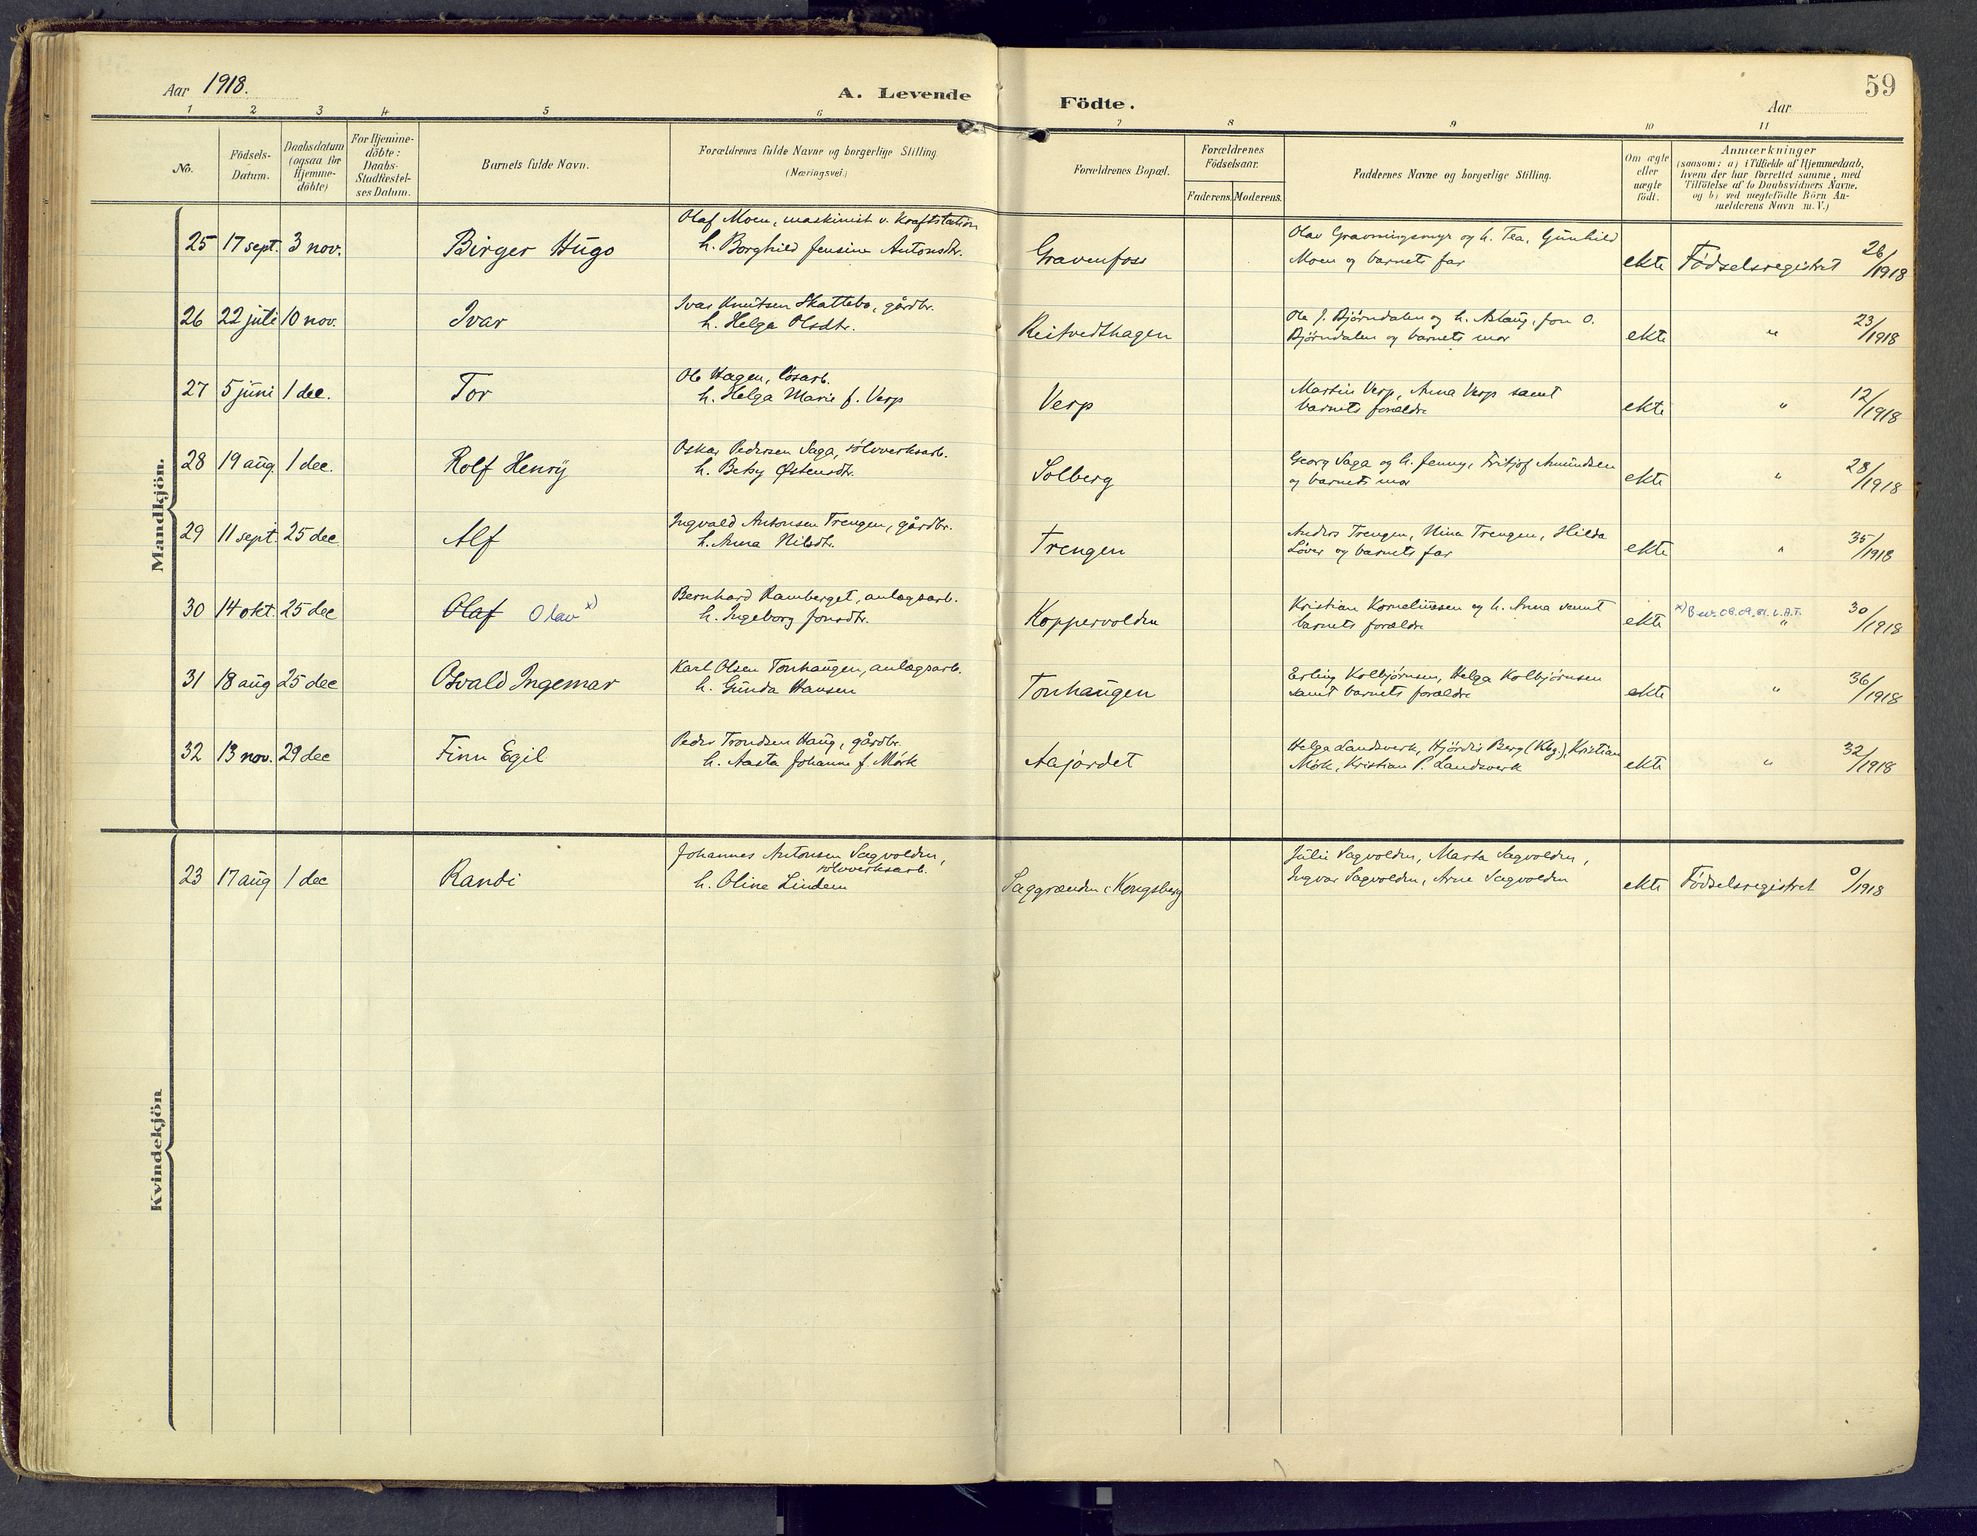 Aar 1918.
A. Levende Födte.
Aar
59
1 2 3 4 5 6 7 8 9 10 11
No.
Födsels-
Datum.
Daabsdatum
(ogsaa for
Hjemme-
döbte)
For Hjemme-
döbte:
Daabs-
Stadfæstel-
ses Datum.
Barnets fulde Navn.
Forældrenes fulde Navne og borgerlige Stilling
(Næringsvei.)
Forældrenes Bopæl.
Forældrenes
Födselsaar.
Faderens. Moderens.
Faddernes Navne og borgerlige Stilling.
Om ægte
eller
uægte
födt.
Anmærkninger
(saasom: a) i Tilfælde af Hjemmedaab,
hvem der har forrettet samme, med
Tilföielse af to Daabsvidners Navne,
og b) ved uægtefödte Börn An-
melderens Navn m. V.)
Mandkjön.
25 17 sept. 3 nov. Birger Hugo
Olaf Moen, maskinist v. Kraftstation
h. Borghild Jensine Antonsdtr.
Gravenfoss
Olav Gravningsmyr og h. Tea, Gunhild
Moen og barnets far
ekte Fødselsregistret 26/1918
26 22 juli 10 nov. Ivar
Ivar Knutsen Skattebo, gårdbr.
h. Helga Olsdtr.
Reistvedthagen
Ole J. Bjørndalen og h. Aslaug, Jon O.
Bjørndalen og barnets mor
ekte " 23/1918
27 5 juni 1 dec. Tor
Ole Hagen, løsarb.
h. Helga Marie f. Verp
Verp
Martin Verp, Anna Verp samt
barnets forældre
ekte " 12/1918
28 19 aug. 1 dec. Rolf Henry
Oskar Pedersen Saga, sølvverksarb.
h. Betsy Østensdtr.
Solberg
Georg Saga og h. Jenny, Fritjof Amundsen
og barnets mor
ekte " 28/1918
29 11 sept. 25 dec. Alf
Ingvald Antonsen Trengen, gårdbr.
h. Anna Nilsdtr.
Trengen
Anders Trengen, Nina Trengen, Hilda
Løver og barnets far
ekte " 35/1918
30 14 okt. 25 dec Olaf Olav x)
Bernhard Ramberget, anlægsarb.
h. Ingeborg Jonsdtr.
Koppervolden
Kristian Korneliussen og h. Anna samt
barnets forældre
ekte x) Bev. 08.09.81. L.A.T. " 30/1918
31 18 aug 25 dec Osvald Ingemar
Karl Olsen Tonhaugen, anlægsarb.
h. Gunda Hansen
Tonhaugen
Erling Kolbjørnsen, Helga Kolbjørnsen
samt barnets forældre
ekte " 36/1918
32 13 nov. 29 dec Finn Egil
Peder Trondsen Haug, gårdbr.
h. Aasta Johanne f. Mørk
Aajordet
Helga Landsverk, Hjördis Berg (Kbg.), Kristian
Mørk, Kristian P. Landsverk
ekte " 32/1918
Kvindekjön
23 17 aug 1 dec Randi
Johannes Antonsen Sagvolden,
sølvverksarb.
h. Oline Lindem
Saggrænden i Kongsberg
Julie Sagvolden, Marta Sagvolden,
Ingvar Sagvolden, Arne Sagvolden
ekte Fødselsregistret 0/1918